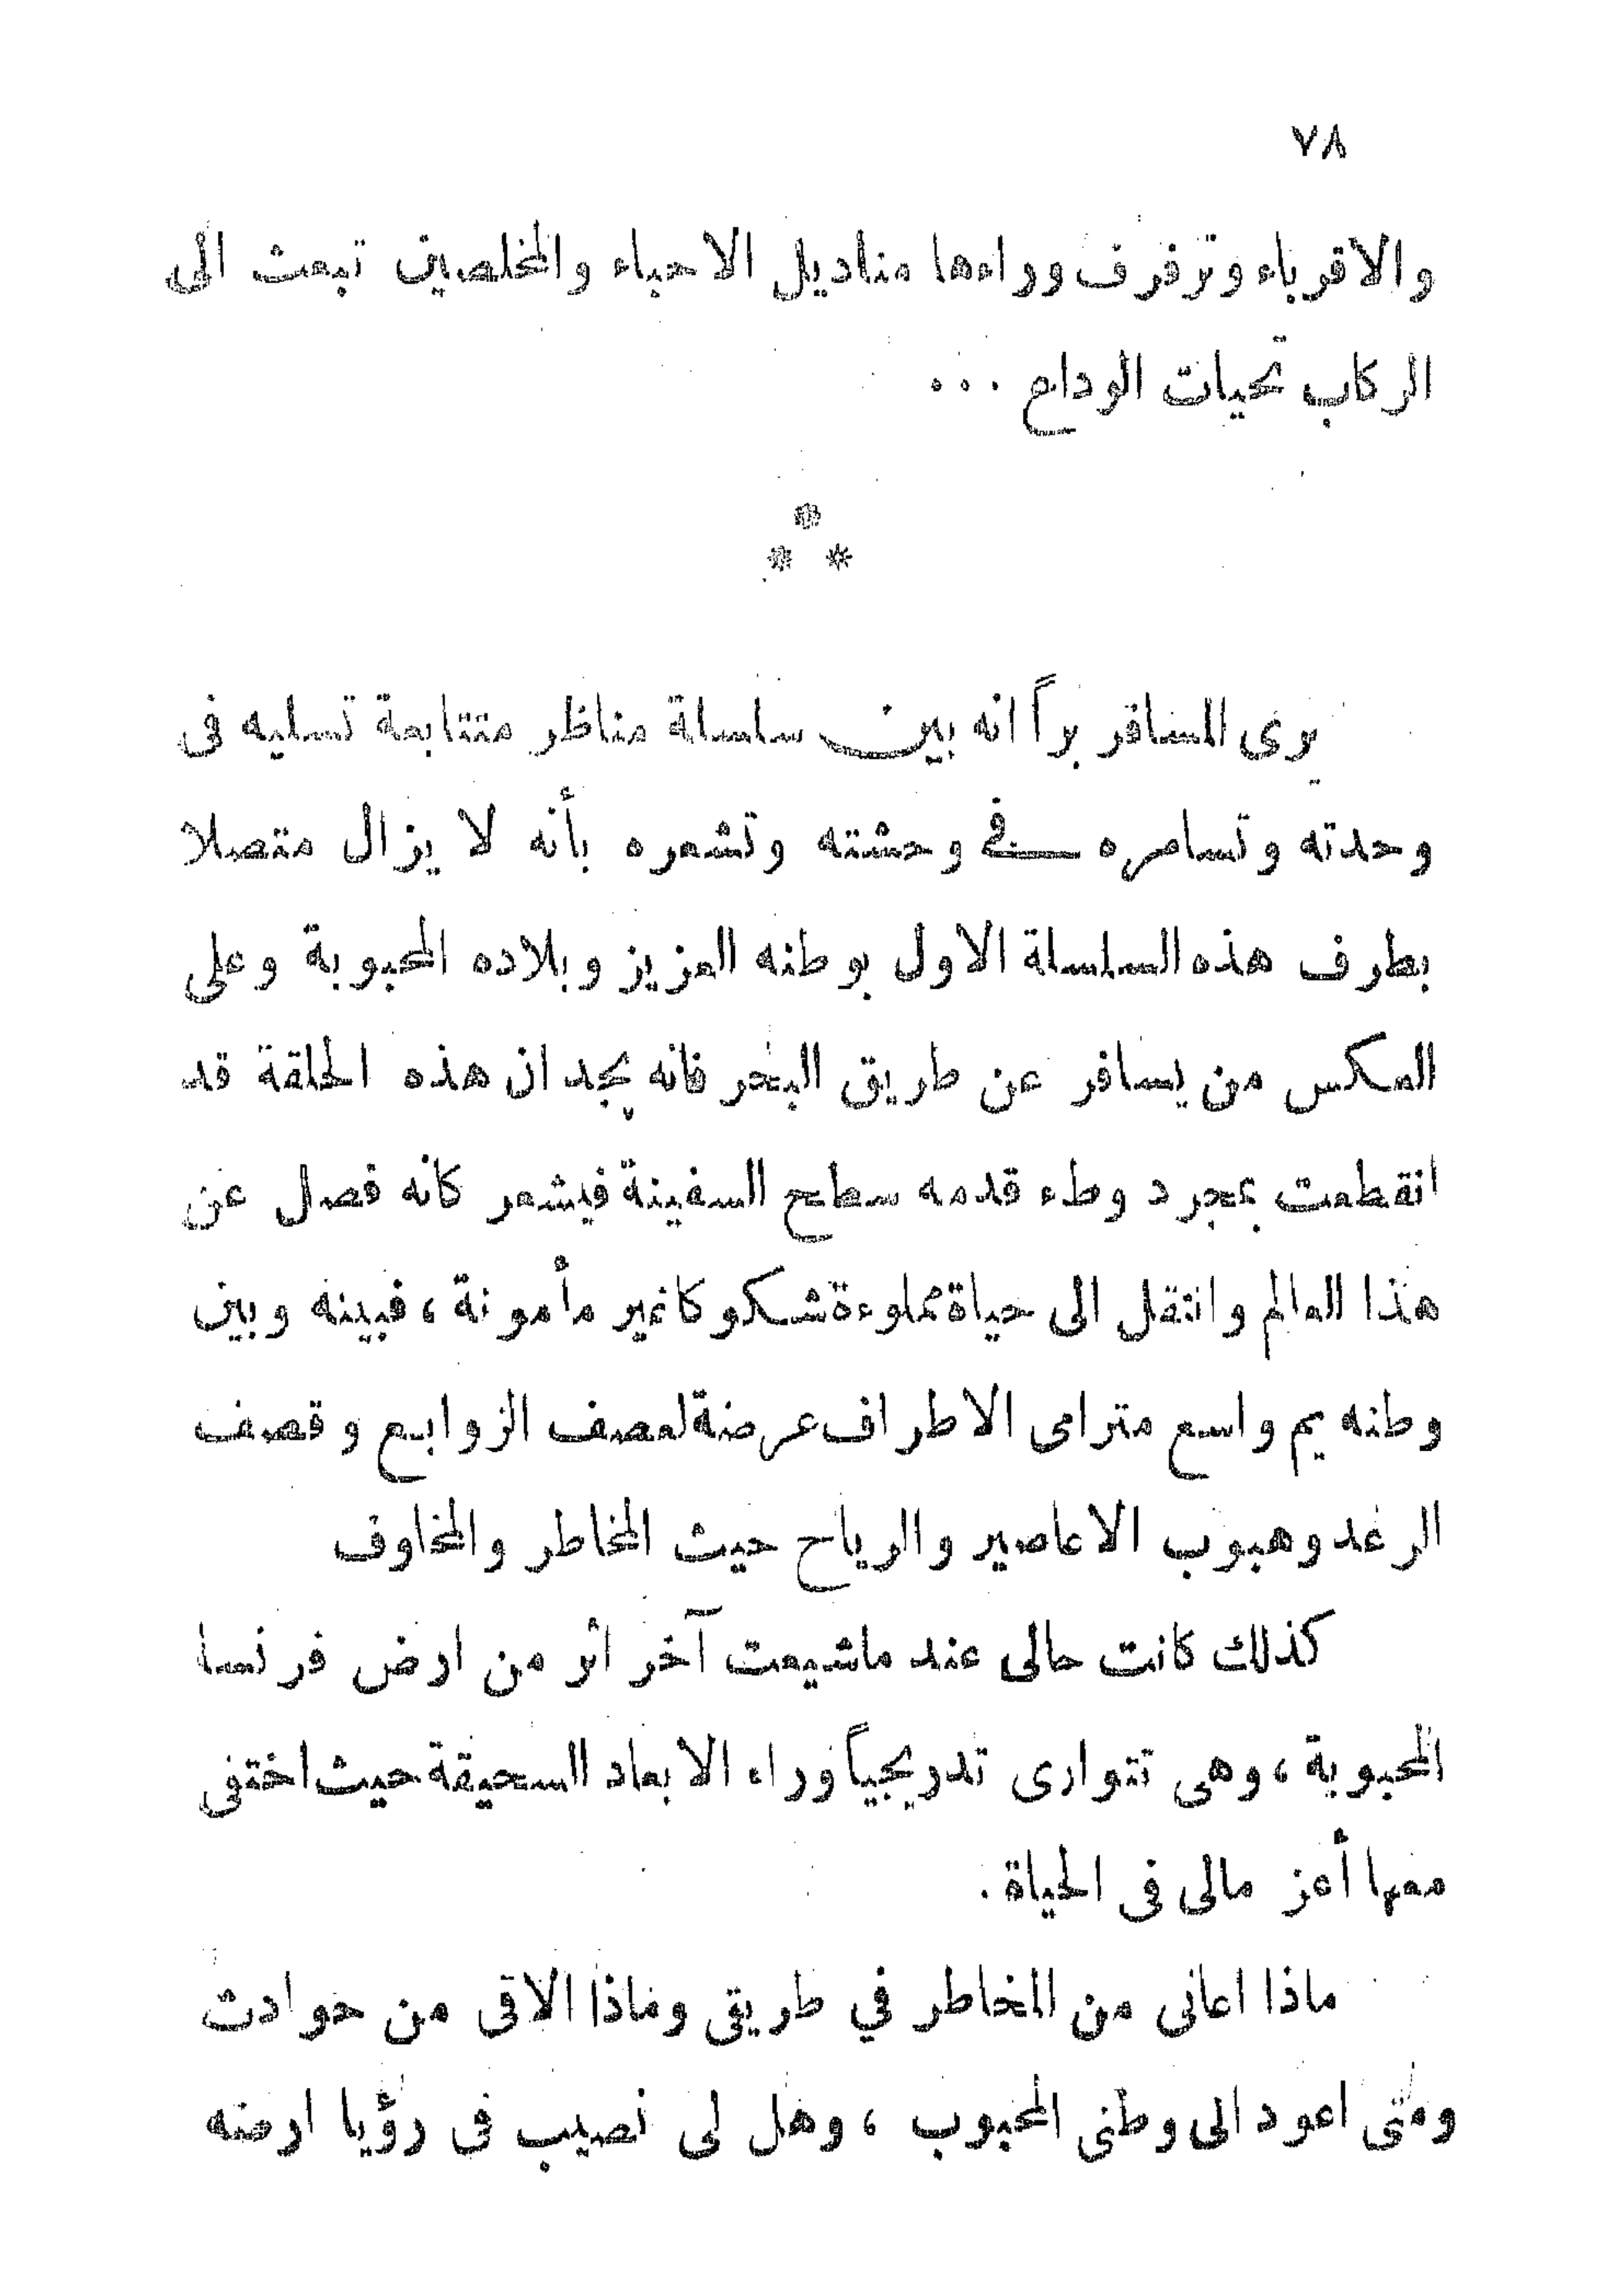 ٧٨
والاقرباء وترفرف وراءها مناديل الاحباء والمخلصين تبعث الى
الركاب تحيات الوداع ...
*
* *
يرى المسافر براً انه بين سلسلة مناظر متتابعة تسليه فى
وحدته وتسامره في وحشته وتشعره بأنه لا يزال متصلا
بطرف هذه السلسلة الاول بوطنه العزيز وبلاده المحبوبة وعلى
العكس من يسافر عن طريق البحر فانه يجد ان هذه الحلقة قد
انقطعت بمجرد وطء قدمه سطح السفينة فيشعر كانه فصل عن
هذا العالم وانتقل الى حياة مملوءة شكوكا غير مأمونة ، فبينه وبين
وطنه يم واسع مترامى الاطراف عرضة لعصف الزوابع وقصف
الرعد وهبوب الاعاصير والرياح حيث المخاطر والمخاوف
كذلك كانت حالى عند ماشيعت آخر اثر من ارض فرنسا
المحبوبة ، وهى تتوارى تدريجياً وراء الابعاد السحيقة حيث اختفى
معها أعز مالى فى الحياة .
ماذا اعانى من المخاطر في طريقى وماذا الاقى من حوادث
ومتى اعود الى وطنى المحبوب ، وهل لى نصيب فى رؤيا ارضه